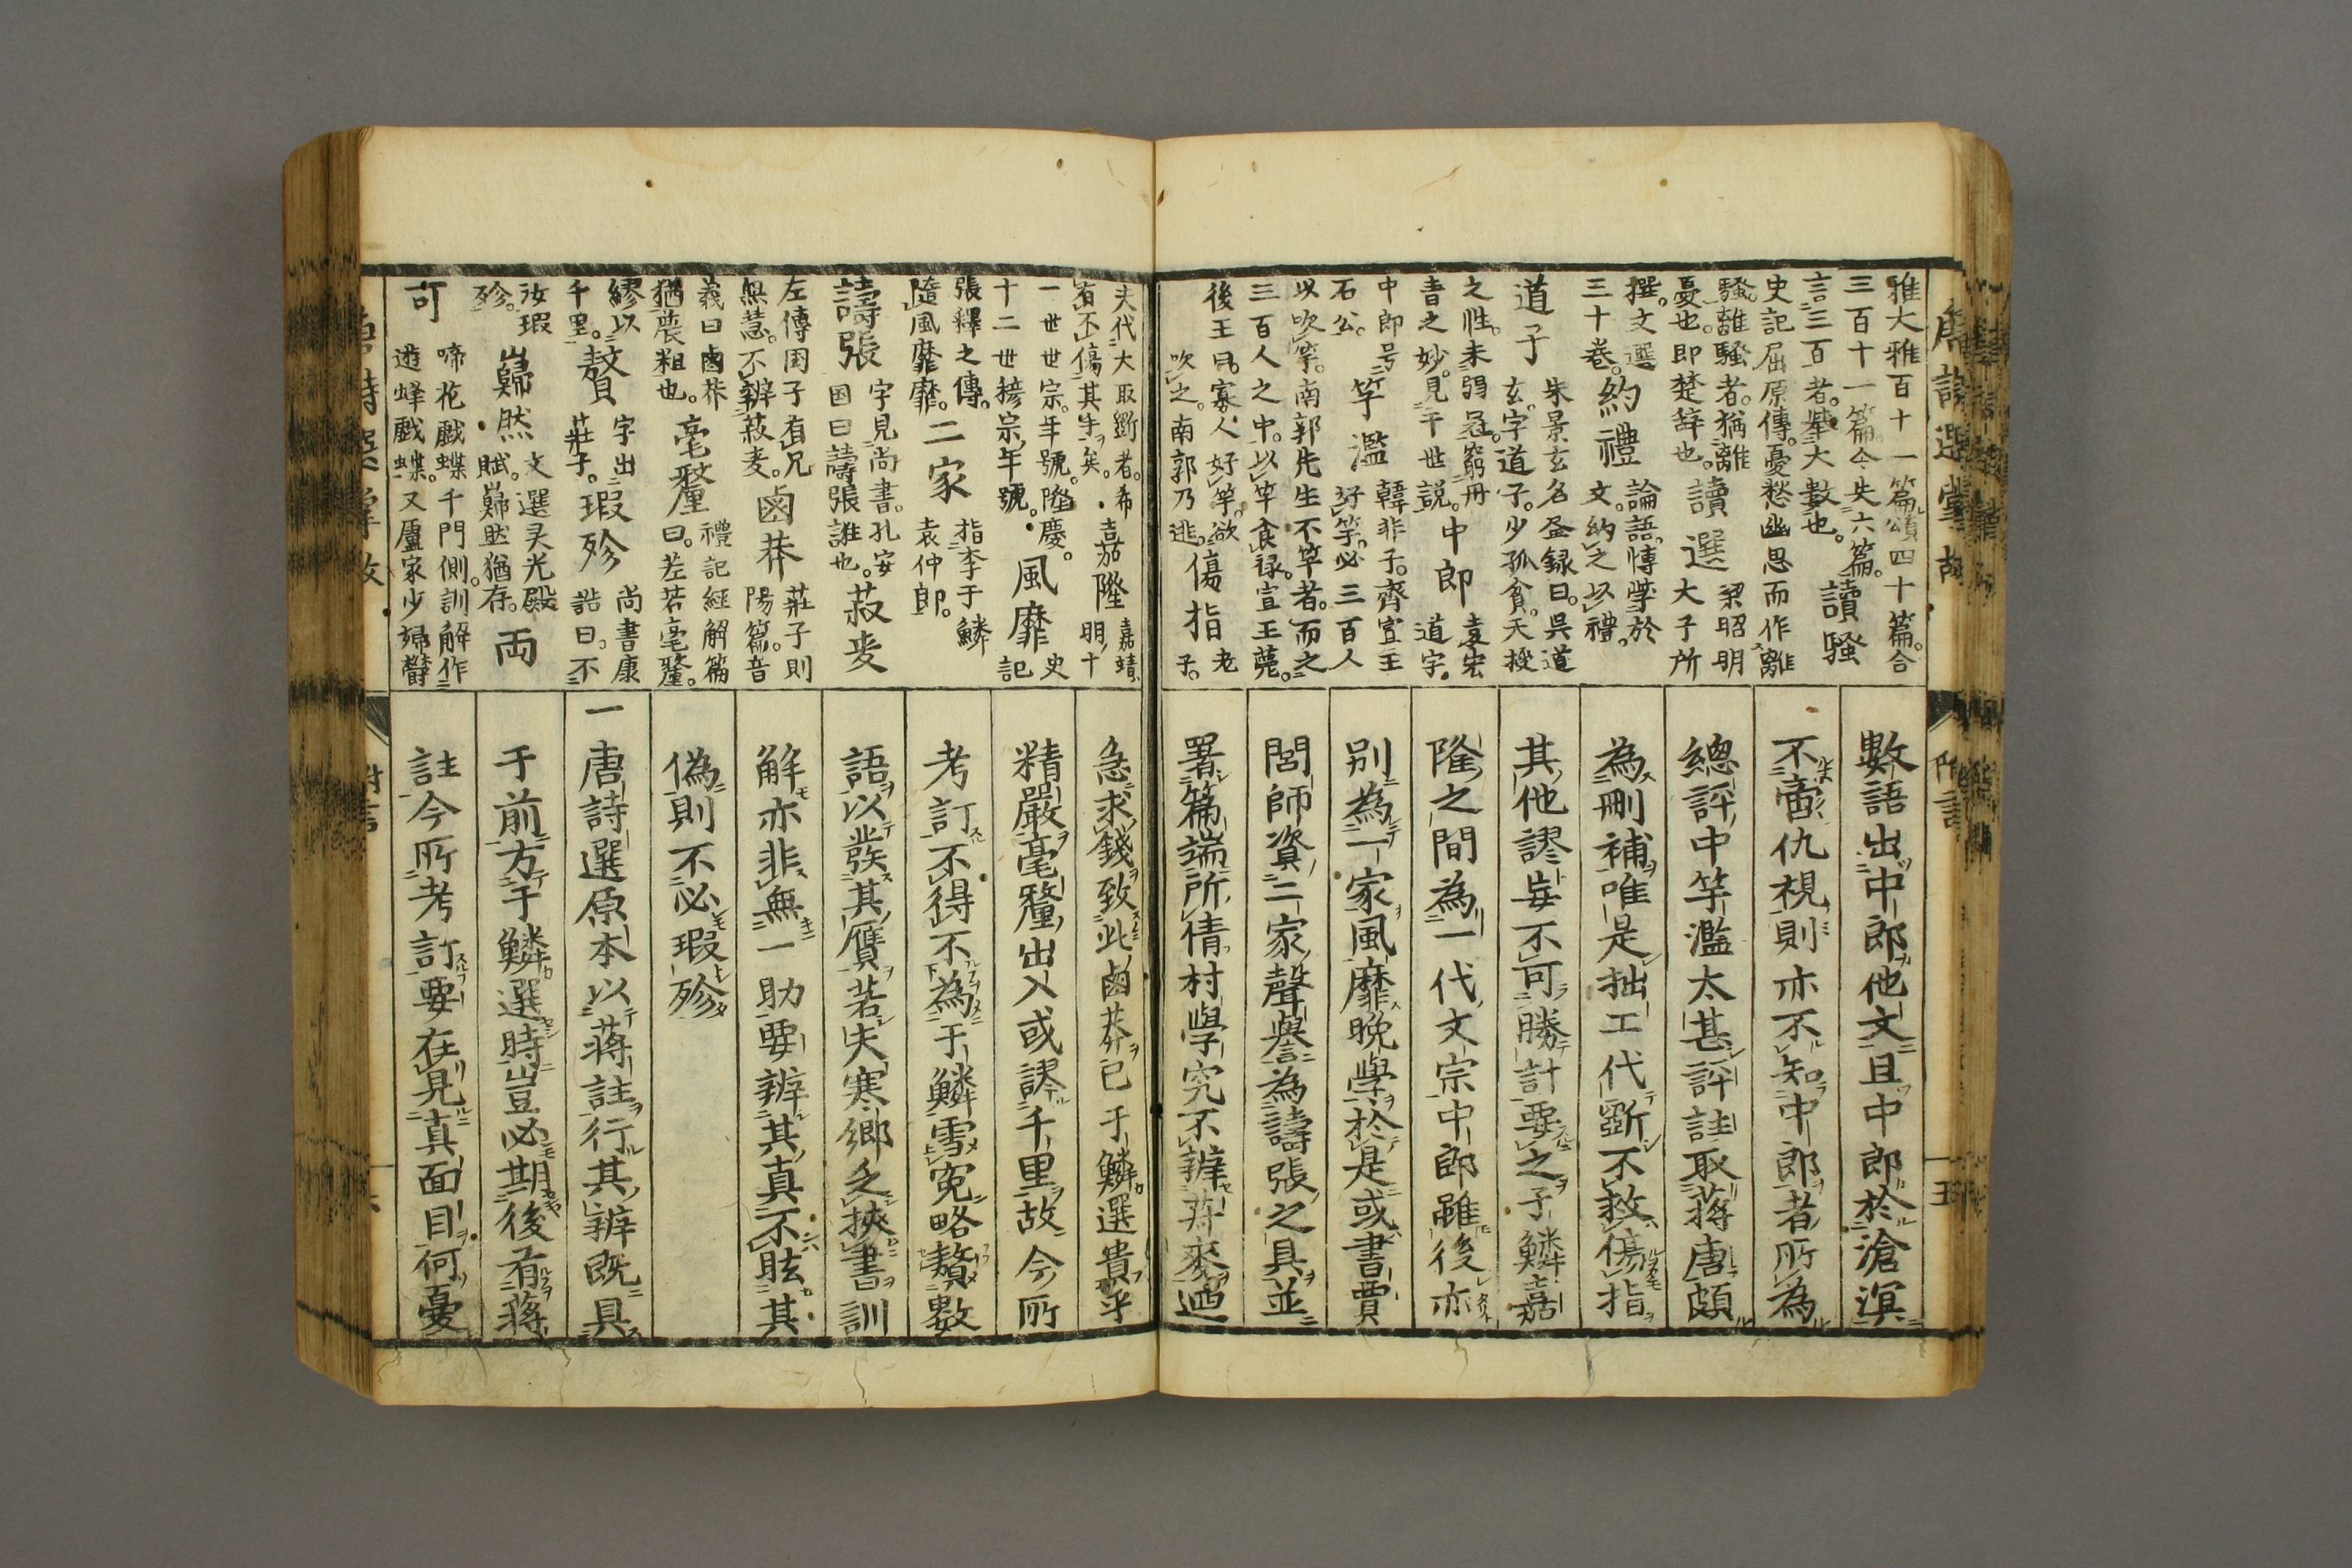 雅大雅百十一篇頌四十篇合
三百十一篇今失六篇 讀騷
言三百者挙大數也
史記屈原傳憂愁幽思而作離
騷離騷者猶離
憂也即楚辞也 讀選 梁昭明
大子所
撰文選
三十卷 約禮 論語博学於
文約之以禮
道子 朱景玄名畫録曰呉道
玄字道子少孤貧天授
之性未弱冠窮丹
青之妙見于世説 中郎 袁宏
道字
中郎号
石公 竽濫 韓非子齊宣王
好竽必三百人
以吹竽南郭先生不竽者而之
三百人之中以竽食禄宣王薨
後王曰寡人好竽欲
吹之南郭乃逃 傷指 老
子
數語出中郎他文且中郎於滄溟
不啻仇視則亦不知中郎者所為
總評中竽濫太甚評註取蒋唐頗
為刪補唯是拙工代斲不救傷指
其他謬妄不可勝計要之子鱗嘉
隆之間為一代文宗中郎雖後亦
別為一家風靡晩學於是或書賈
閭師資二家聲譽為譸張之具並
署篇端所倩村學究不辨菽麥過
夫代大取斲者希
有不傷其手矣 嘉隆 嘉靖
明十
一世世宗年號隆慶
十二世穆宗年號 風靡 史
記
張釋之傳
隨風靡靡 二家 指李于鱗
袁仲郎
譸張 字見尚書孔安
国曰譸張誑也 菽麦
左傳周子有兄
無慧不辨菽麦 鹵莽 荘子則
陽篇音
義曰鹵莽
猶麄粗也 毫釐 禮記經解篇
曰差若毫釐
繆以
千里 贅 字出
荘子 瑕殄 尚書康
誥曰不
汝瑕
殄 巋然 文選灵光殿
賦巋然猶存 両
可 啼花戯蝶千門側訓解作
遊蜂戯蝶又盧家少婦欝
急求錢致此鹵莽已于鱗選貴乎
精嚴毫釐出入或謬千里故今所
考訂不得不為于鱗雪寃略贅數
語以發其贋若夫寒郷乏挾書訓
解亦非無一助要辨其真不眩其
偽則不必瑕殄
一唐詩選原本以蒋註行其辨既具
于前方于鱗選時豈必期後有蒋
註今所考訂要在見真面目何憂